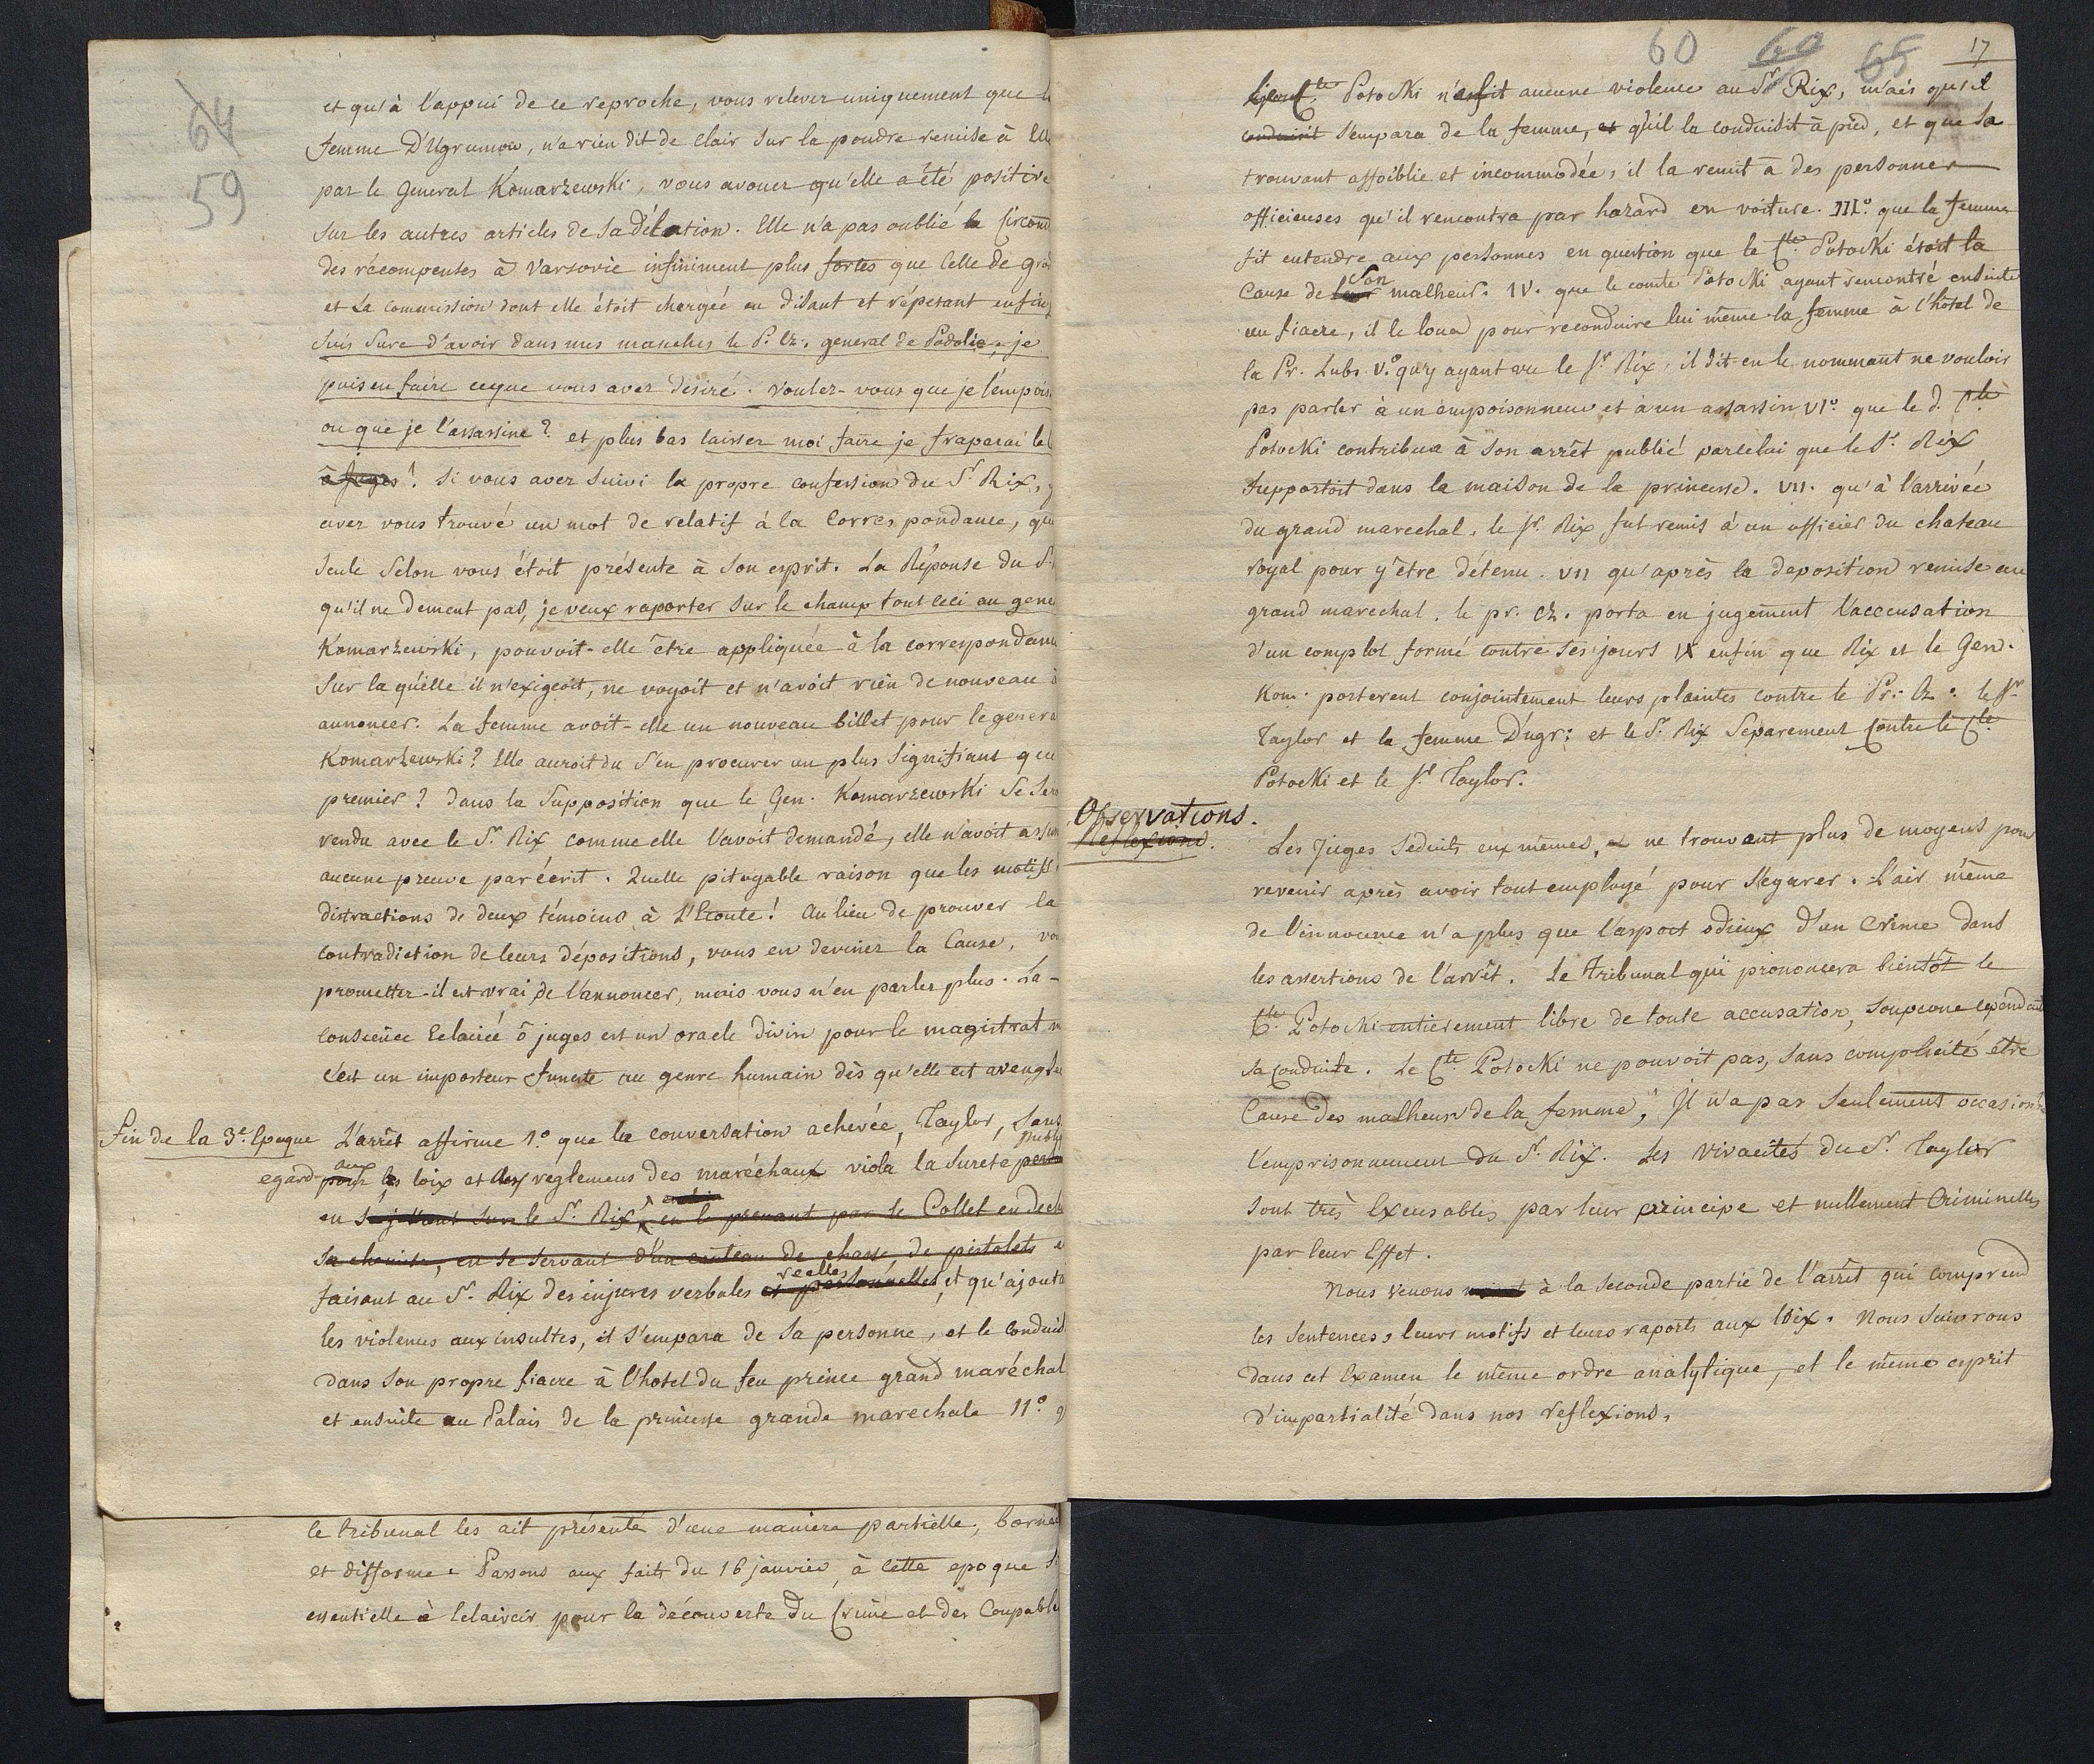 64
59
et qu'à l'appui de ce reproche, vous relevez uniquement que l
femme D'Ugrumow, n'a rien dit de clair sur la poudre remise à Elle
par le General Komarzewski, vous avouez qu'elle a été positive
sur les autres articles de sa Délation. Elle n'a pas oublié la Circon
des récompenses à Varsovie infiniment plus fortes que celle de Grod
et La commission dont elle étoit chargée en disant et répetant enfin j
suis sure d'avoir dans mes manches le P. Cz. general de Podolie, je
puis en faire ce que vous avez desiré. voulez-vous que je l'empois
ou que je l'assassine? et plus bas laissez moi faire je fraperai le
ô juges! si vous avez suivi la propre confession du Sr. Rix, y
avez vous trouvé un mot de relatif à la Correspondance, qui
seule selon vous étoit présente à son esprit. La Réponse du S.
qu'il ne dement pas, je veux raporter sur le champ tout ceci au gene
Komarzewski, pouvoit-elle être appliquée à la correspondance
sur laquelle il n'exigeoit, ne voyoit et n'avoit rien de nouveau à
annoncer. La femme avoit-elle un nouveau billet pour le genera
Komarzewski? Elle auroit du s'en procurer un plus signifiant que
premier? dans la supposition que le Gen. Komarzewski se sero
rendu avec le Sr. Rix comme elle l'avoit demandé, elle n'avoit assu
aucune preuve par écrit. Quelle pitoyable raison que les motifs
distractions de deux témoins à L'Ecoute! Au lieu de prouver la
contradiction de leurs dépositions, vous en devinez la Cause, vo
promettez-il est vrai, de l'annoncer, mais vous n'en parlez plus. La-
conscience Eclairée ô juges est un oracle divin pour le magistrat m
c'est un imposteur funeste au genre humain dès qu'elle est aveugle
fin de la 3e. Epoque L'arrêt affirme 1.o que la conversation achevée, Taylor, sans
egard pour aux les loix et des réglemens des maréchaux viola la sureté publi
en se jettant sur le Sr. Rix, en le prenant par le Collet en dech
sa chemise, en se servant d'un couteau de chasse, de pistolets e
faisant au Sr. Rix des injures verbales et personnelles réelles, et qu'ajouta
les violences aux insultes, il s'empara de sa personne, et le conduisi
dans son propre fiacre à l'hotel du feu prince grand maréchal
et ensuite au Palais de la princesse grande marechale II.o q
le tribunal les ait présenté d'une maniere partielle, borné
et difforme. Passons aux faits du 16 janvier, à cette epoque si
essentielle à Eclaircir pour la découverte du Crime et des Coupable
60 60 65 17
Cte Potocki n'a fit aucune violence au Sr Rix, mais qu'il
conduisit s'empara de la femme, et qu'il la conduisit à pied, et que sa
trouvant affoiblie et incommodée, il la remit à des personnes
officieuses qu'il rencontra par hazard en voiture. III.o que la femme
fit entendre aux personnes en question que le Cte Potocki étoit la
Cause de leur son malheur. IV. que le comte Potocki ayant rencontré ensuite
un fiacre, il le loua pour reconduire lui même la femme à l'hôtel de
la Pr. Lubs. V.o qu'y ayant vu le Sr Rix, il dit en le nommant ne vouloir
pas parler à un empoisonneur et à un assassin VI.o que le d. Cte
Potocki contribua à son arrêt publié par celui que le Sr. Rix
supportoit dans la maison de la princesse. VII. qu'à l'arrivée
du grand marechal, le Sr. Rix fut remis à un officier du chateau
royal pour y être détenu. VII qu'après la deposition remise au
grand marechal, le pr. Cz. porta en jugement l'accusation
d'un complot formé contre ses jours IX enfin que Rix et le Gen.
Kom. porterent conjointement leurs plaintes contre le Pr. Cz. le Sr
Taylor et la femme D'ugr: et le Sr. Rix separement Contre le Cte
Potocki et le Sr. Taylor.
Observations.
Reflexions.
Les Juges seduits eux mêmes, et ne trouvant plus de moyens pour
revenir après avoir tout employé pour s'égarer. L'air même
de l'innocence n'a plus que l'aspect odieux d'un Crime dans
les assertions de l'arrêt. Le Tribunal qui prononcera bientôt le
Cte. Potocki entierement libre de toute accusation, soupçonne cependant
sa conduite. Le Cte. Potocki ne pouvoit pas, sans complicité être
Cause des malheurs de la femme, Il n'a pas seulement occasionné
l'emprisonnement du Sr. Rix. Les vivacités du Sr. Taylor
sont très Excusables par leur principe et nullement Criminelles
par leur Effet.
Nous venons à la seconde partie de l'arrêt qui comprend
les sentences, leurs motifs et leurs raports aux loix. Nous suivrons
dans cet Examen le même ordre analytique, et le même esprit
d'impartialité dans nos reflexions.